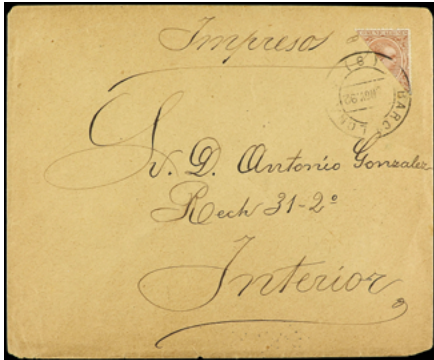 Impresos
BARCELONA
(8)
Sr. D. Antonio Gonzalez
Rech 31-2º
Interior